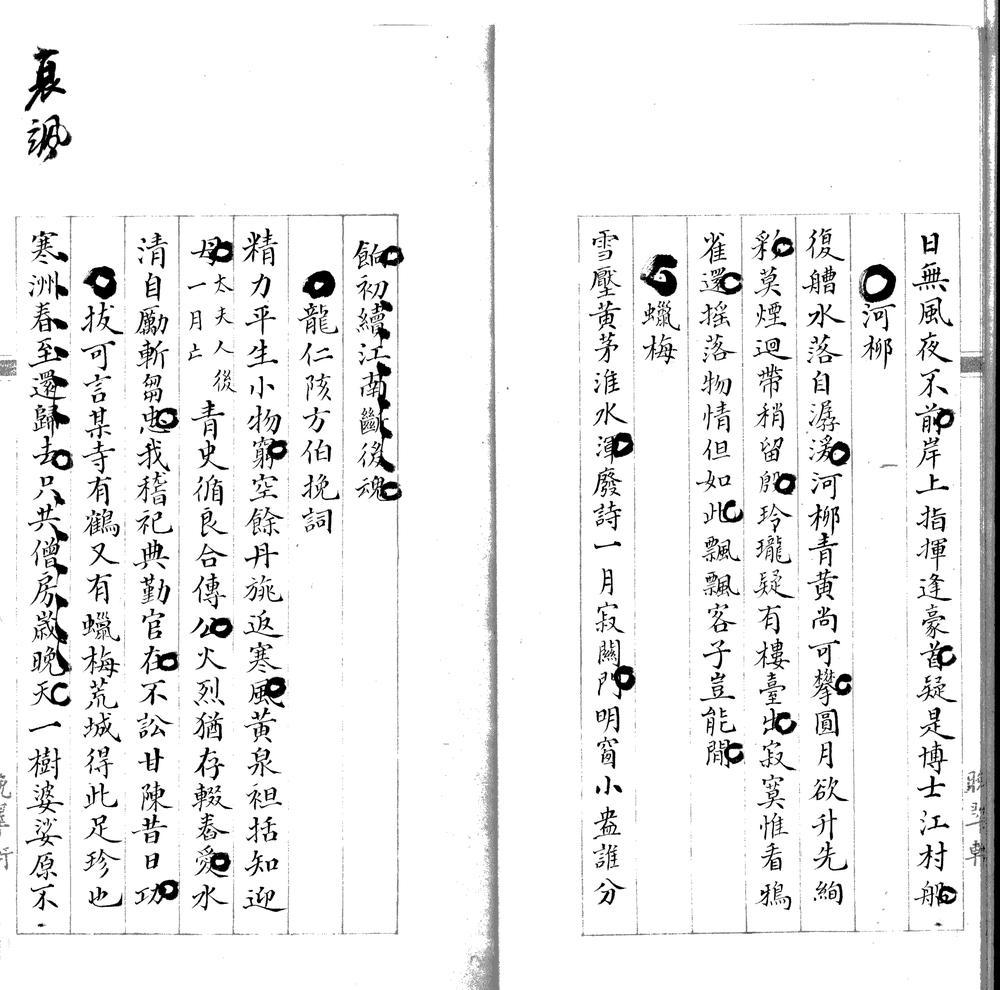 日無風夜不前岸上指揮逢豪首疑是博士江村船
河柳
復艚水落自潺湲河柳青黃尚可攀圓月欲升先絢
彩莫煙迴帶稍留殷玲瓏疑有樓臺出寂寞惟看鴉
雀還搖落物情但如此飄飄客子豈能閒
蠟梅
雪壓黃茅淮水渾廢詩一月寂關門明窗小盎誰分
餉初續江南斷後魂
龍仁陔方伯挽詞
精力平生小物窮空餘丹旐返寒風黃泉袒括知迎
母太夫人後一月亡青史循良合傳公火烈猶存輟舂愛水
清自勵斬芻忠我稽祀典勤官在不訟甘陳昔日功
拔可言某寺有鶴又有蠟梅荒城得此足珍也
寒洲春至還歸去只共僧房歲晚天一樹婆娑原不
衰颯
晚翠軒